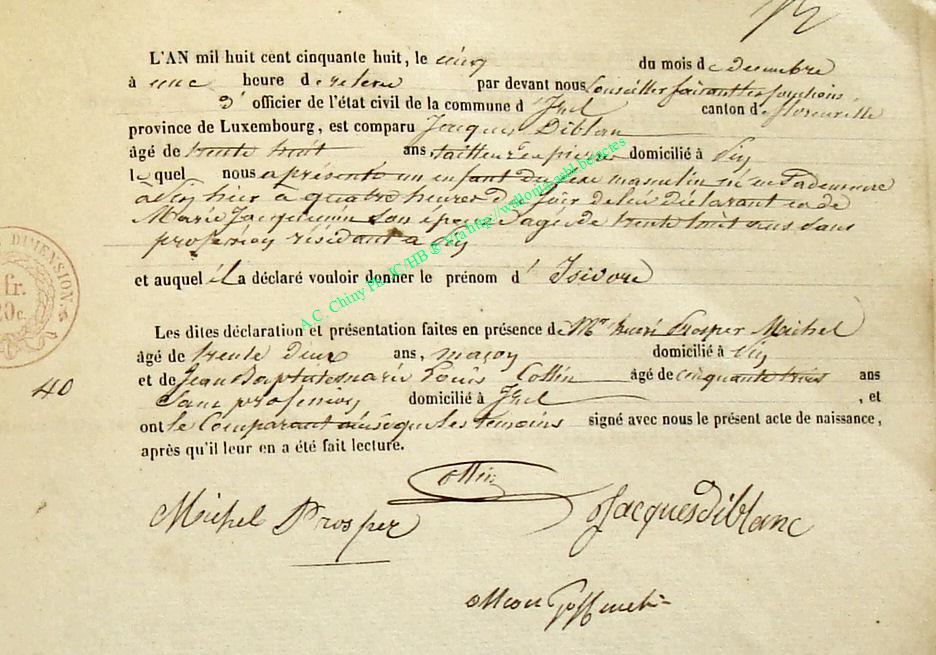 L'AN mil huit cent cinquante huit, le cinq du mois de decembre
à une heure de relevée par devant nous Conseiller faisant les fonctions
d' officier de l'état civil de la commune d' Izel canton de florenville
province de Luxembourg, est comparu Jacques Diblanc
âgé de trente huit ans, tailleur de pierre domicilié à Pin
lequel nous a présenté un enfant du sexe masculin né en sa demeure
à Pin hier à quatre heures du soir de lui déclarant et de
Marie Jacquemin son épouse agée de trente huit ans sans
profession résidant a Pin
et auquel il a déclaré vouloir donner le prénom d' Isidore
Les dites déclaration et présentation faites en présence de Mr henri Prosper Michel
âgé de trente deux ans, maçon domicilié à Pin
et de Jean Baptiste marie Louis Collin âgé de cinquante trois ans
Sans profession domicilié à Izel , et
ont le Comparant ainsi que les temoins signé avec nous le présent acte de naissance,
après qu'il leur en a été fait lecture.
DIMENSION.
fr.
20c.
40
Collin
Michel Prosper
Jacques Diblanc
A.C. Chiny Ph. JC/HB @ Via http://wallonia.asbl.be/actes